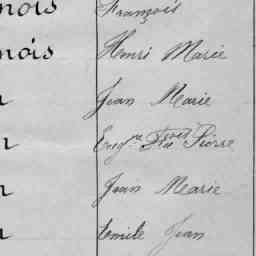 nois François
nois Henri Marie
Jean Marie
Eug.ne Pierre
Jean Marie
Emile Jean